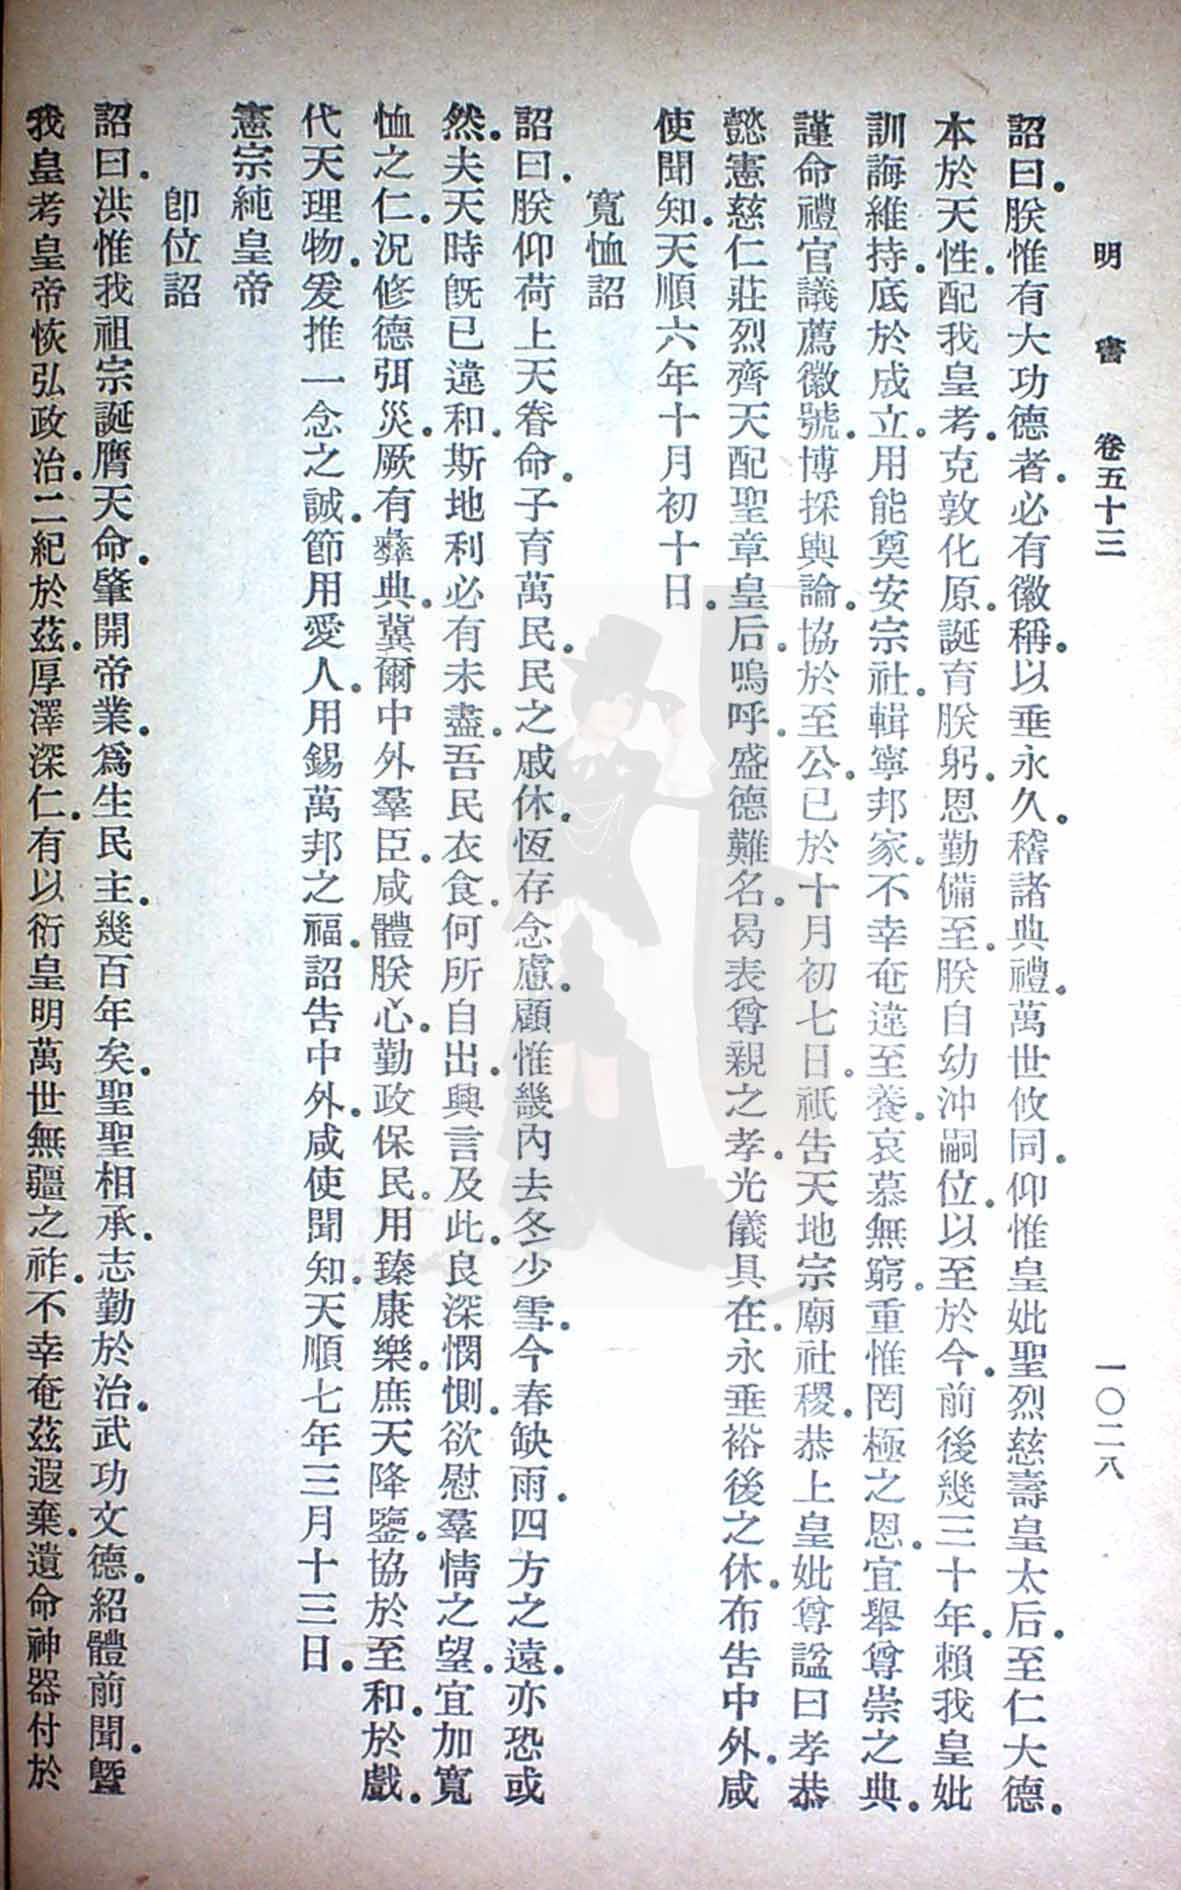 明書 卷五十三 一〇二八
詔曰。朕惟有大功德者。必有徽稱。以垂永久。稽諸典禮。萬世攸同。仰惟皇妣聖烈慈壽皇太后。至仁大德。
本於天性。配我皇考。克敦化原。誕育朕躬。恩勤備至。朕自幼沖嗣位。以至於今。前後幾三十年。賴我皇妣
訓誨維持。底於成立。用能奠安宗社。輯寧邦家。不幸奄違至養。哀慕無窮。重惟罔極之恩。宜舉尊崇之典。
謹命禮官議薦徽號。博採輿論。協於至公。已於十月初七日。祇告天地宗廟社稷。恭上皇妣尊諡曰孝恭
懿憲慈仁莊烈齊天配聖章皇后。嗚呼。盛德難名。曷表尊親之孝。光儀具在。永垂裕後之休。布告中外。咸
使聞知。天順六年十月初十日。
寬恤詔
詔曰。朕仰荷上天眷命。子育萬民。民之戚休。恆存念慮。顧惟畿內去冬少雪。今春缺雨。四方之遠。亦恐或
然。夫天時旣已違和。斯地利必有未盡。吾民衣食。何所自出。興言及此。良深憫惻。欲慰羣情之望。宜加寬
恤之仁。況修德弭災。厥有彝典。冀爾中外羣臣。咸體朕心。勤政保民。用臻康樂。庶天降鑒。協於至和。於戲。
代天理物。爰推一念之誠。節用愛人。用錫萬邦之福。詔告中外。咸使聞知。天順七年三月十三日。
憲宗純皇帝
卽位詔
詔曰。洪惟我祖宗誕膺天命。肇開帝業。爲生民主。幾百年矣。聖聖相承。志勤於治。武功文德。紹體前聞。曁
我皇考皇帝恢弘政治。二紀於茲。厚澤深仁。有以衍皇明萬世無疆之祚。不幸奄茲遐棄。遺命神器付於